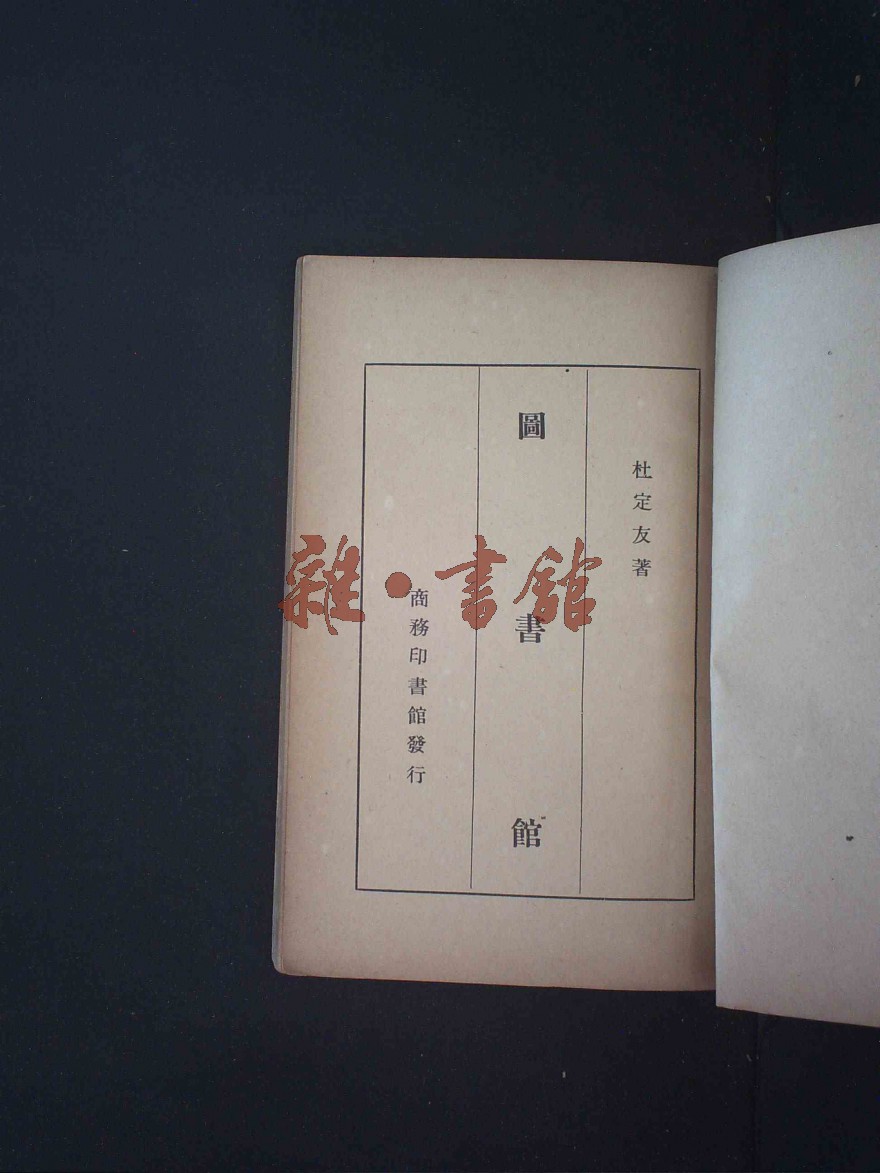 杜定友著
圖書館
商務印書館發行
雜·書館